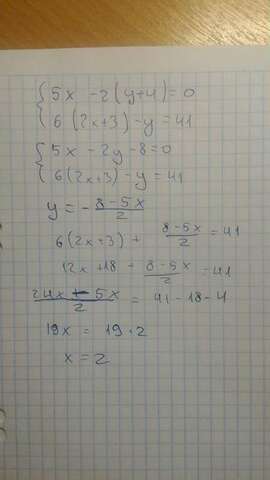 { 5x - 2(y+4) = 0
6(2x+3) - y = 41
{ 5x - 2y - 8 = 0
6(2x+3) - y = 41
y = - 8-5x/2
6(2x+3) + 8-5x/2 = 41
12x + 18 + 8-5x/2 = 41
24x - 5x/2 = 41 - 18 - 4
19x = 19 · 2
x = 2